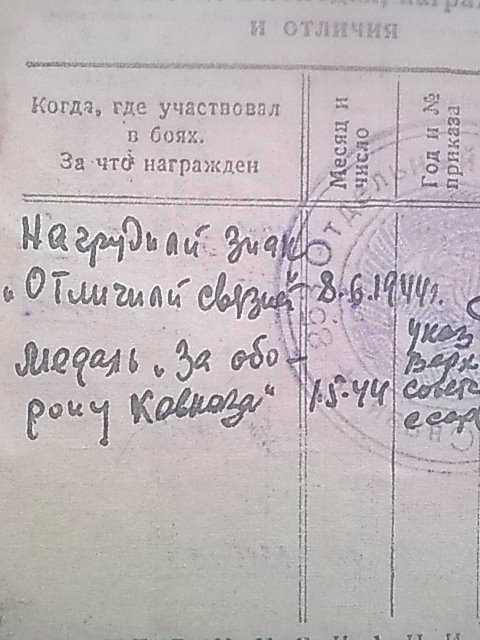 и отличия
Когда, где участвовал
в боях.
За что награжден
Месяц и
число
Год и №
приказа
Нагрудный знак
„Отличный связист" 8.6.1944г.
Медаль „За обо-
рону Кавказа" 1.5.44
указ
Верх
совета
ссср
Отдельный